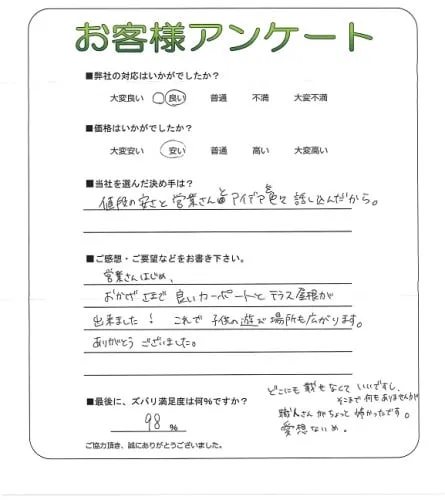 お客様アンケート
■弊社の対応はいかがでしたか?
大変良い 良い 普通 不満 大変不満
■価格はいかがでしたか?
大変安い 安い 普通 高い 大変高い
■当社を選んだ決め手は?
値段の安さと営業さんとアイデアを色々話し込んだから。
■ご感想・ご要望などをお書き下さい。
営業さんはじめ、
おかげさまで良いカーポートとテラス屋根が
出来ました! これで子供の遊ぶ場所も広がります。
ありがとうございました。
■最後に、ズバリ満足度は何%ですか?
98 %
ご協力頂き、誠にありがとうございました。
どこにも載せなくていいですし、
そこまで何もありませんが
職人さんがちょっと怖かったです。
愛想ないめ。